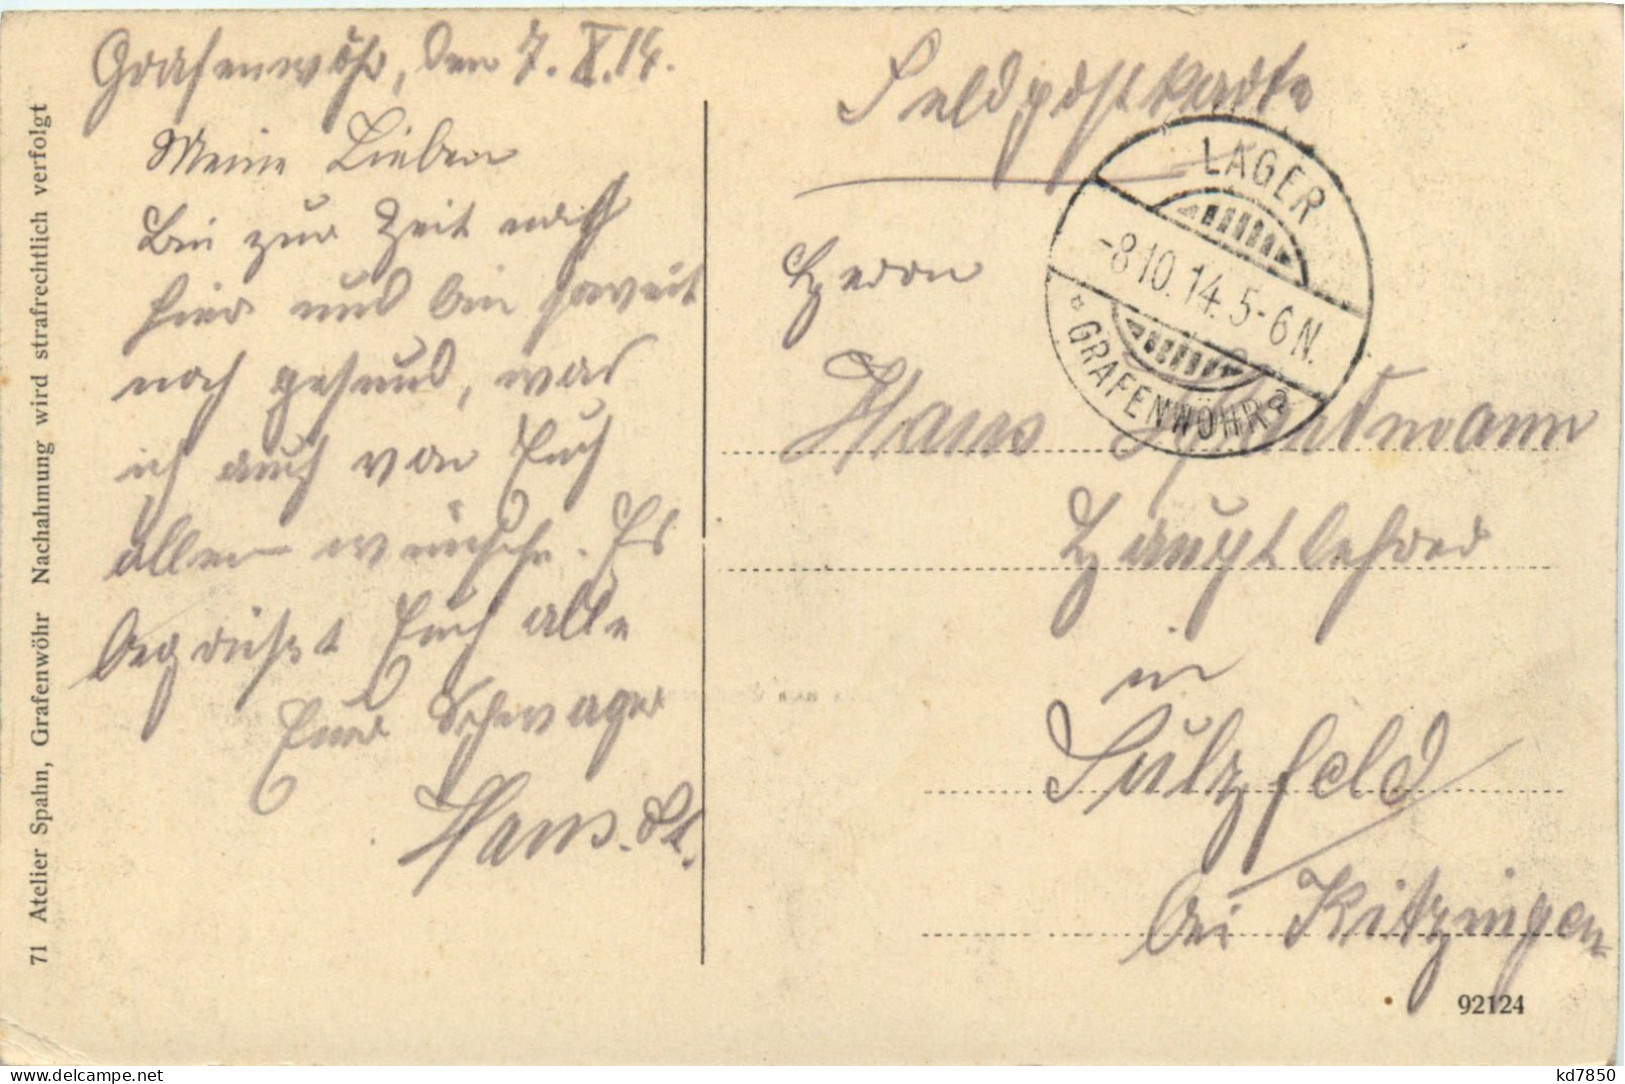 Grafenwöhr, den 7. X. 14.
Meine Lieben
Bin zur Zeit noch
hier und bin soweit
noch gesund, was
ich auch von Euch
allen wünsche. Es
begrüßt Euch alle
Euer Schwager
Hans. St.
Feldpostkarte
Herrn
Hans
Hauptlehrer
in
Sulzfeld
bei Kitzingen
LAGER
-8.10.14. 5-6 N.
* GRAFENWÖHR
71 Atelier Spahn, Grafenwöhr Nachahmung wird strafrechtlich verfolgt
92124
kd7850